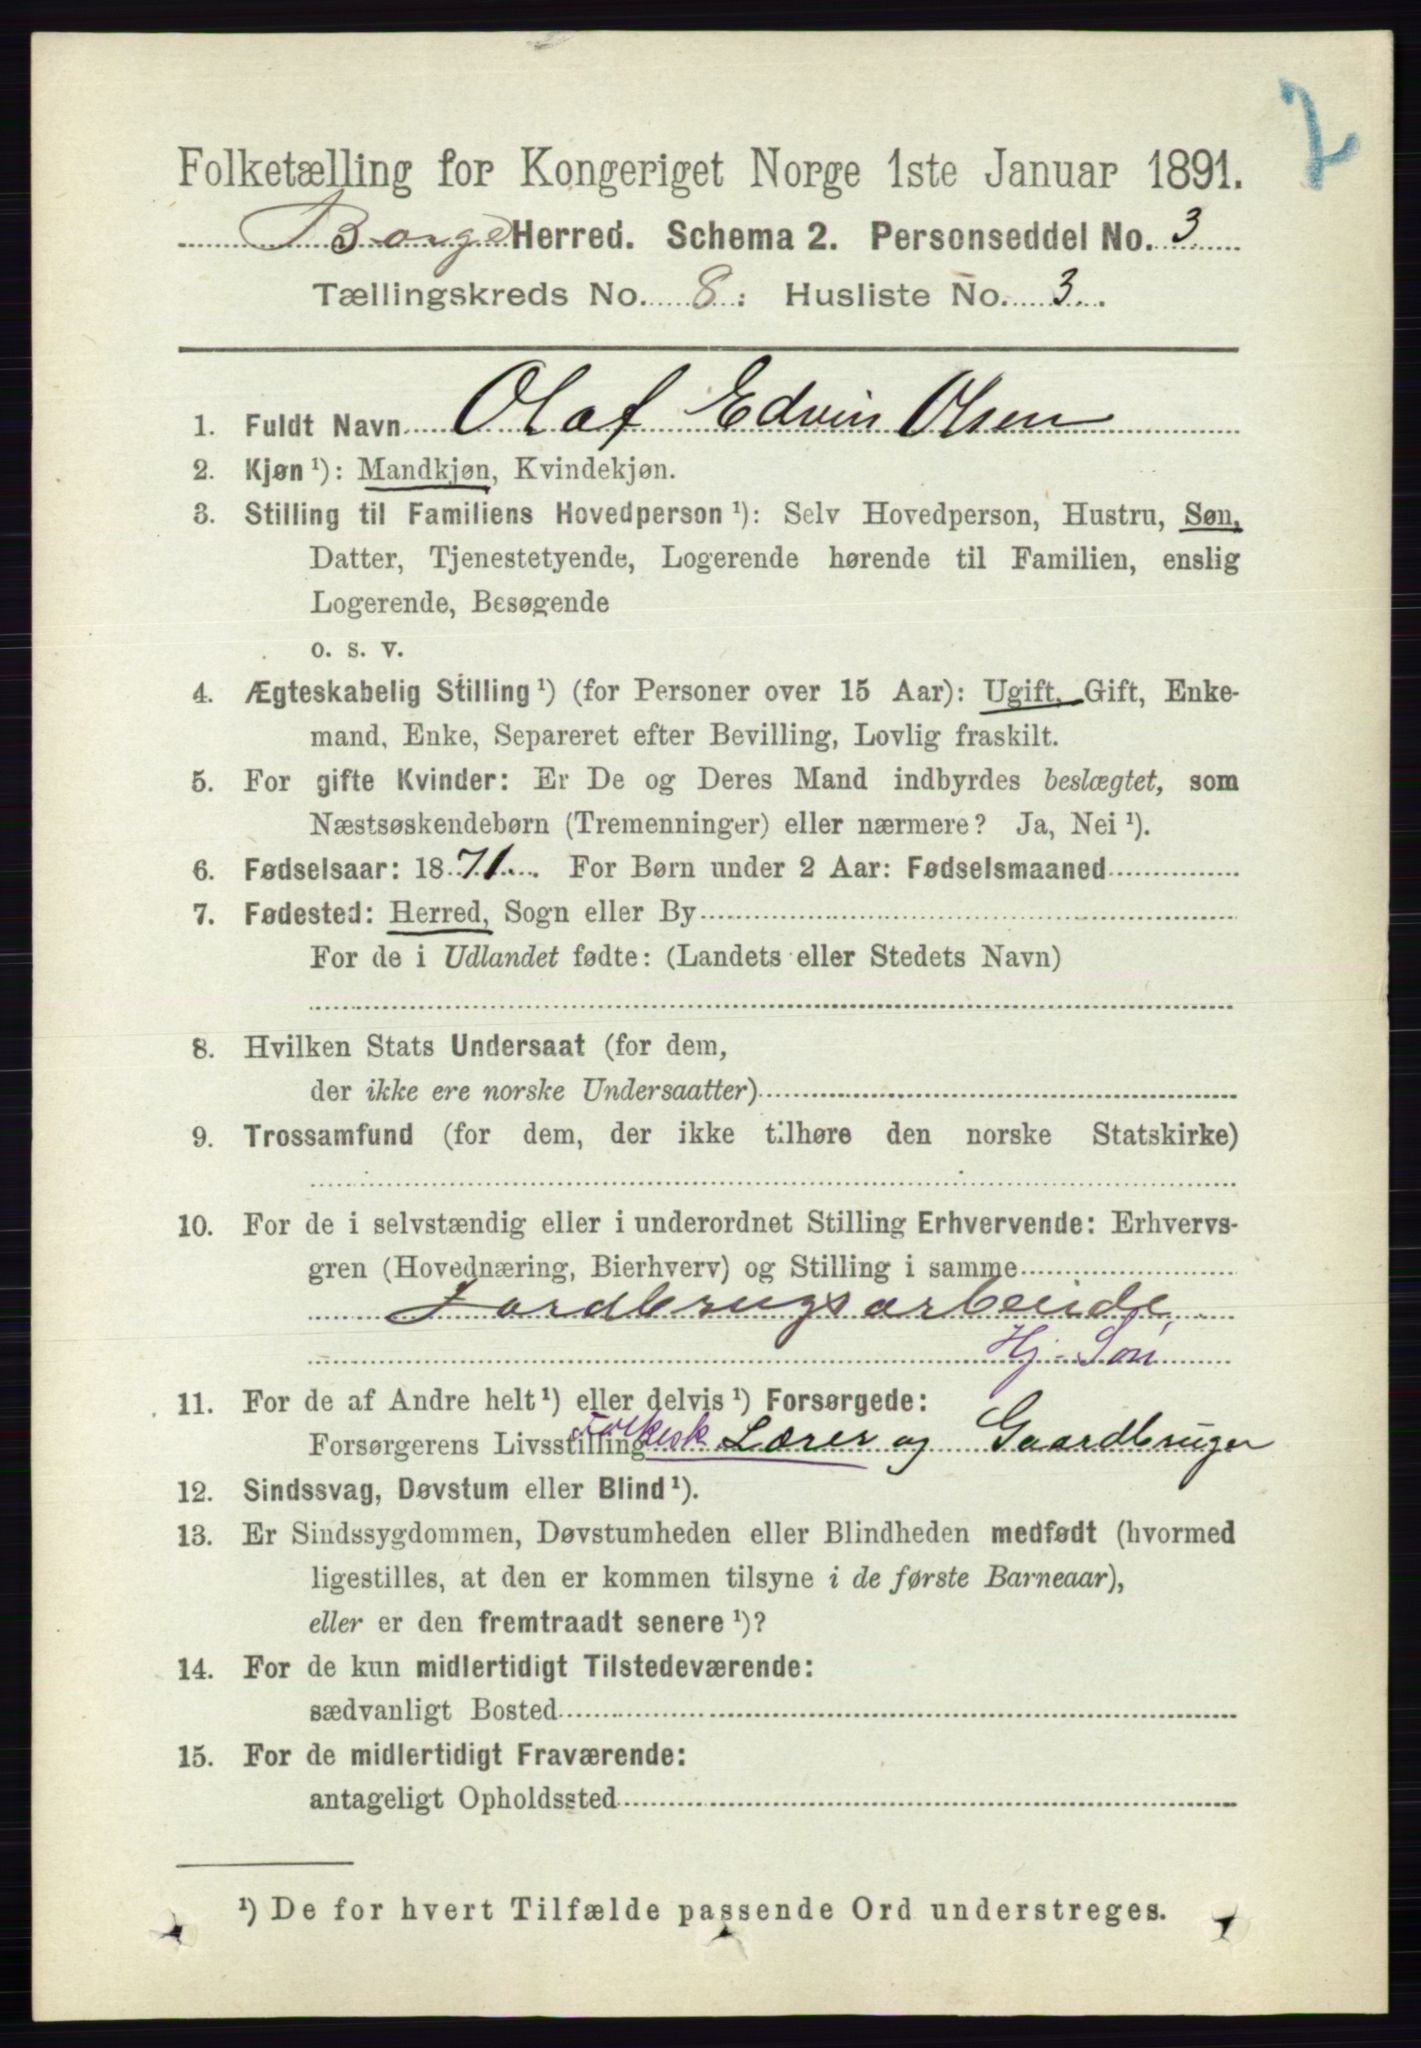 2
Folketælling for Kongeriget Norge 1ste Januar 1891.
Borge Herred. Schema 2. Personseddel No. 3
Tællingskreds No. 8: Husliste No. 3.
1. Fuldt Navn Olaf Edvin Olsen
2. Kjøn ¹): Mandkjøn, Kvindekjøn.
3. Stilling til Familiens Hovedperson ¹): Selv Hovedperson, Hustru, Søn,
Datter, Tjenestetyende, Logerende hørende til Familien, enslig
Logerende, Besøgende
o. s. v.
4. Ægteskabelig Stilling ¹) (for Personer over 15 Aar): Ugift, Gift, Enke-
mand, Enke, Separeret efter Bevilling, Lovlig fraskilt.
5. For gifte Kvinder: Er De og Deres Mand indbyrdes beslægtet, som
Næstsøskendebørn (Tremenninger) eller nærmere? Ja, Nei ¹).
6. Fødselsaar: 1871. For Børn under 2 Aar: Fødselsmaaned
7. Fødested: Herred, Sogn eller By
For de i Udlandet fødte: (Landets eller Stedets Navn)
8. Hvilken Stats Undersaat (for dem,
der ikke ere norske Undersaatter)
9. Trossamfund (for dem, der ikke tilhøre den norske Statskirke)
10. For de i selvstændig eller i underordnet Stilling Erhvervende: Erhvervs-
gren (Hovednæring, Bierhverv) og Stilling i samme
Jordbrugsarbeide
Hj. Søn
11. For de af Andre helt ¹) eller delvis ¹) Forsørgede:
Forsørgerens Livsstilling Folkesk Lærer og Gaardbruger
12. Sindssvag, Døvstum eller Blind ¹).
13. Er Sindssygdommen, Døvstumheden eller Blindheden medfødt (hvormed
ligestilles, at den er kommen tilsyne i de første Barneaar),
eller er den fremtraadt senere ¹)?
14. For de kun midlertidigt Tilstedeværende:
sædvanligt Bosted
15. For de midlertidigt Fraværende:
antageligt Opholdssted
¹) De for hvert Tilfælde passende Ord understreges.